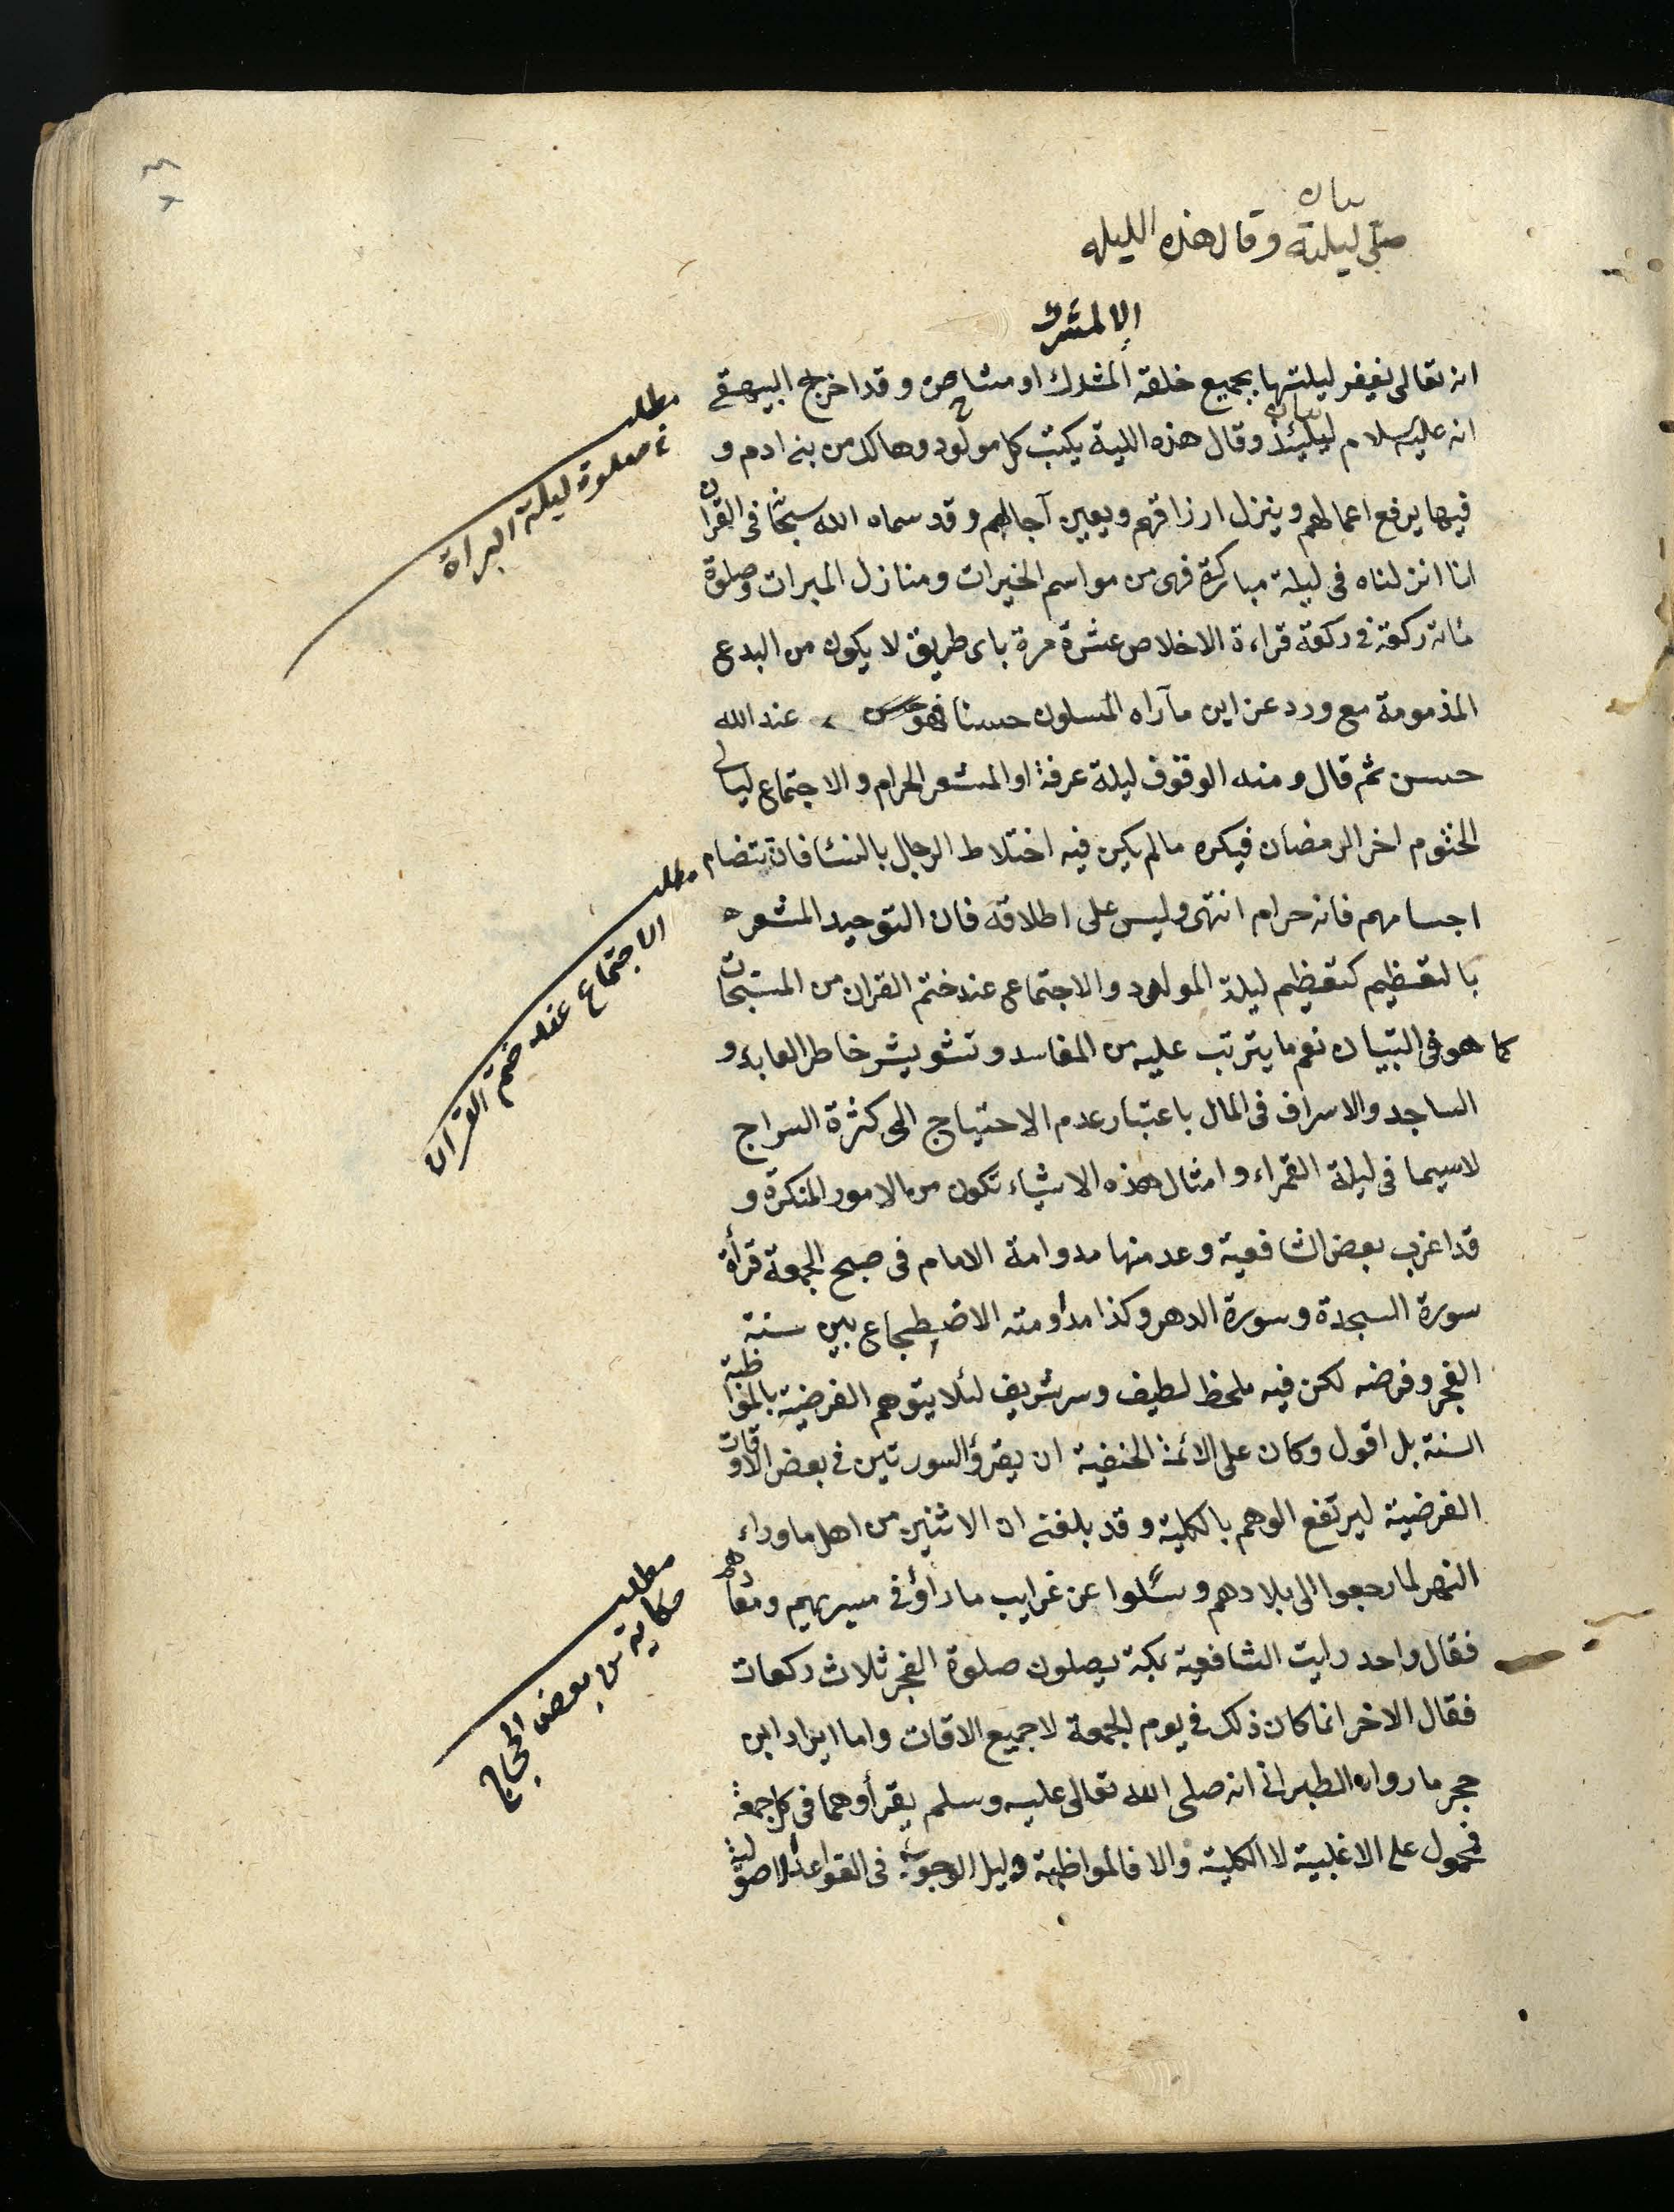 صلى ليلته وقال هذه الليله
الا لمشرك
انه تعالى يغفر ليلتها بجميع خلقه المشرك او مشاحن وقد اخرج البيهقى
انه عليه السلام ليلتئذ وقال هذه الليلة يكتب كل مولود وهالك من بنى ادم و
فيها يرفع اعمالهم وينزل ارزاقهم ويعين آجالهم وقد سماه الله سبحا فى القران
انا انزلناه فى ليلة مباركة فهى من مواسم الخيرات ومنازل المبرات وصلوة
مائة ركعة فى ركعة قراءة الاخلاص عشرة مرة باى طريق لا يكون من البدع
المذمومة مع ورد عن ابن مارآه المسلون حسنا فهو عند الله
حسن ثم قال ومنه الوقوف ليلة عرفة او المشعر الحرام والاجتماع ليالى
الختوم اخر الرمضان فيكره مالم يكن فيه اختلاط الرجال بالنسا فان تتضام
اجسامهم فانه حرام انتهى وليس على اطلاقه فان التوحيد المشعر
بالتعظيم كتعظيم ليلة المولود والاجتماع عند ختم القران من المستحبات
كما هو فى التبيان نعم ما يترتب عليه من المفاسد وتشويش خاطر العابد و
الساجد والاسراف فى المال باعتبار عدم الاحتياج الى كثرة السراج
لاسيما فى ليلة القمراء وامثال هذه الاشياء تكون من الامور المنكرة و
قد اغرب بعض الشافعية وعد منها مداومة الامام فى صبح الجمعة قرأة
سورة السجدة وسورة الدهر وكذا مداومته الاضطجاع بين سنة
الفجر وفرضه لكن فيه ملحظ لطيف وسر شريف لئلا يتوهم الفرضية بالمواظبة
السنة بل اقول وكان على الائمة الحنفية ان يقرؤ السورتين فى بعض الاوقات
الفرضية ليرتفع الوهم بالكلية وقد بلغنى ان الاثنين من اهل ماوراء
النهر لما رجعوا الى بلادهم وسئلوا عن غرايب ما رأو فى مسيرهم ومعادهم
فقال واحد رايت الشافعية بمكة يصلون صلوة الفجر ثلاث ركعات
فقال الاخر انما كان ذلك فى يوم الجمعة لا جميع الاقات واما ايراد ابن
حجر ما رواه الطبرانى انه صلى الله تعالى عليه وسلم يقرأوهما فى كل جمعة
فمحمول على الاغلبية لا الكلية والا فالمواظبة دليل الوجوب فى القواعد الاصولية
مطلب
فى صلوة ليلة البراة
مطلب
الاجتماع عند ختم القران
مطلب
حكاية من بعض الحجاج